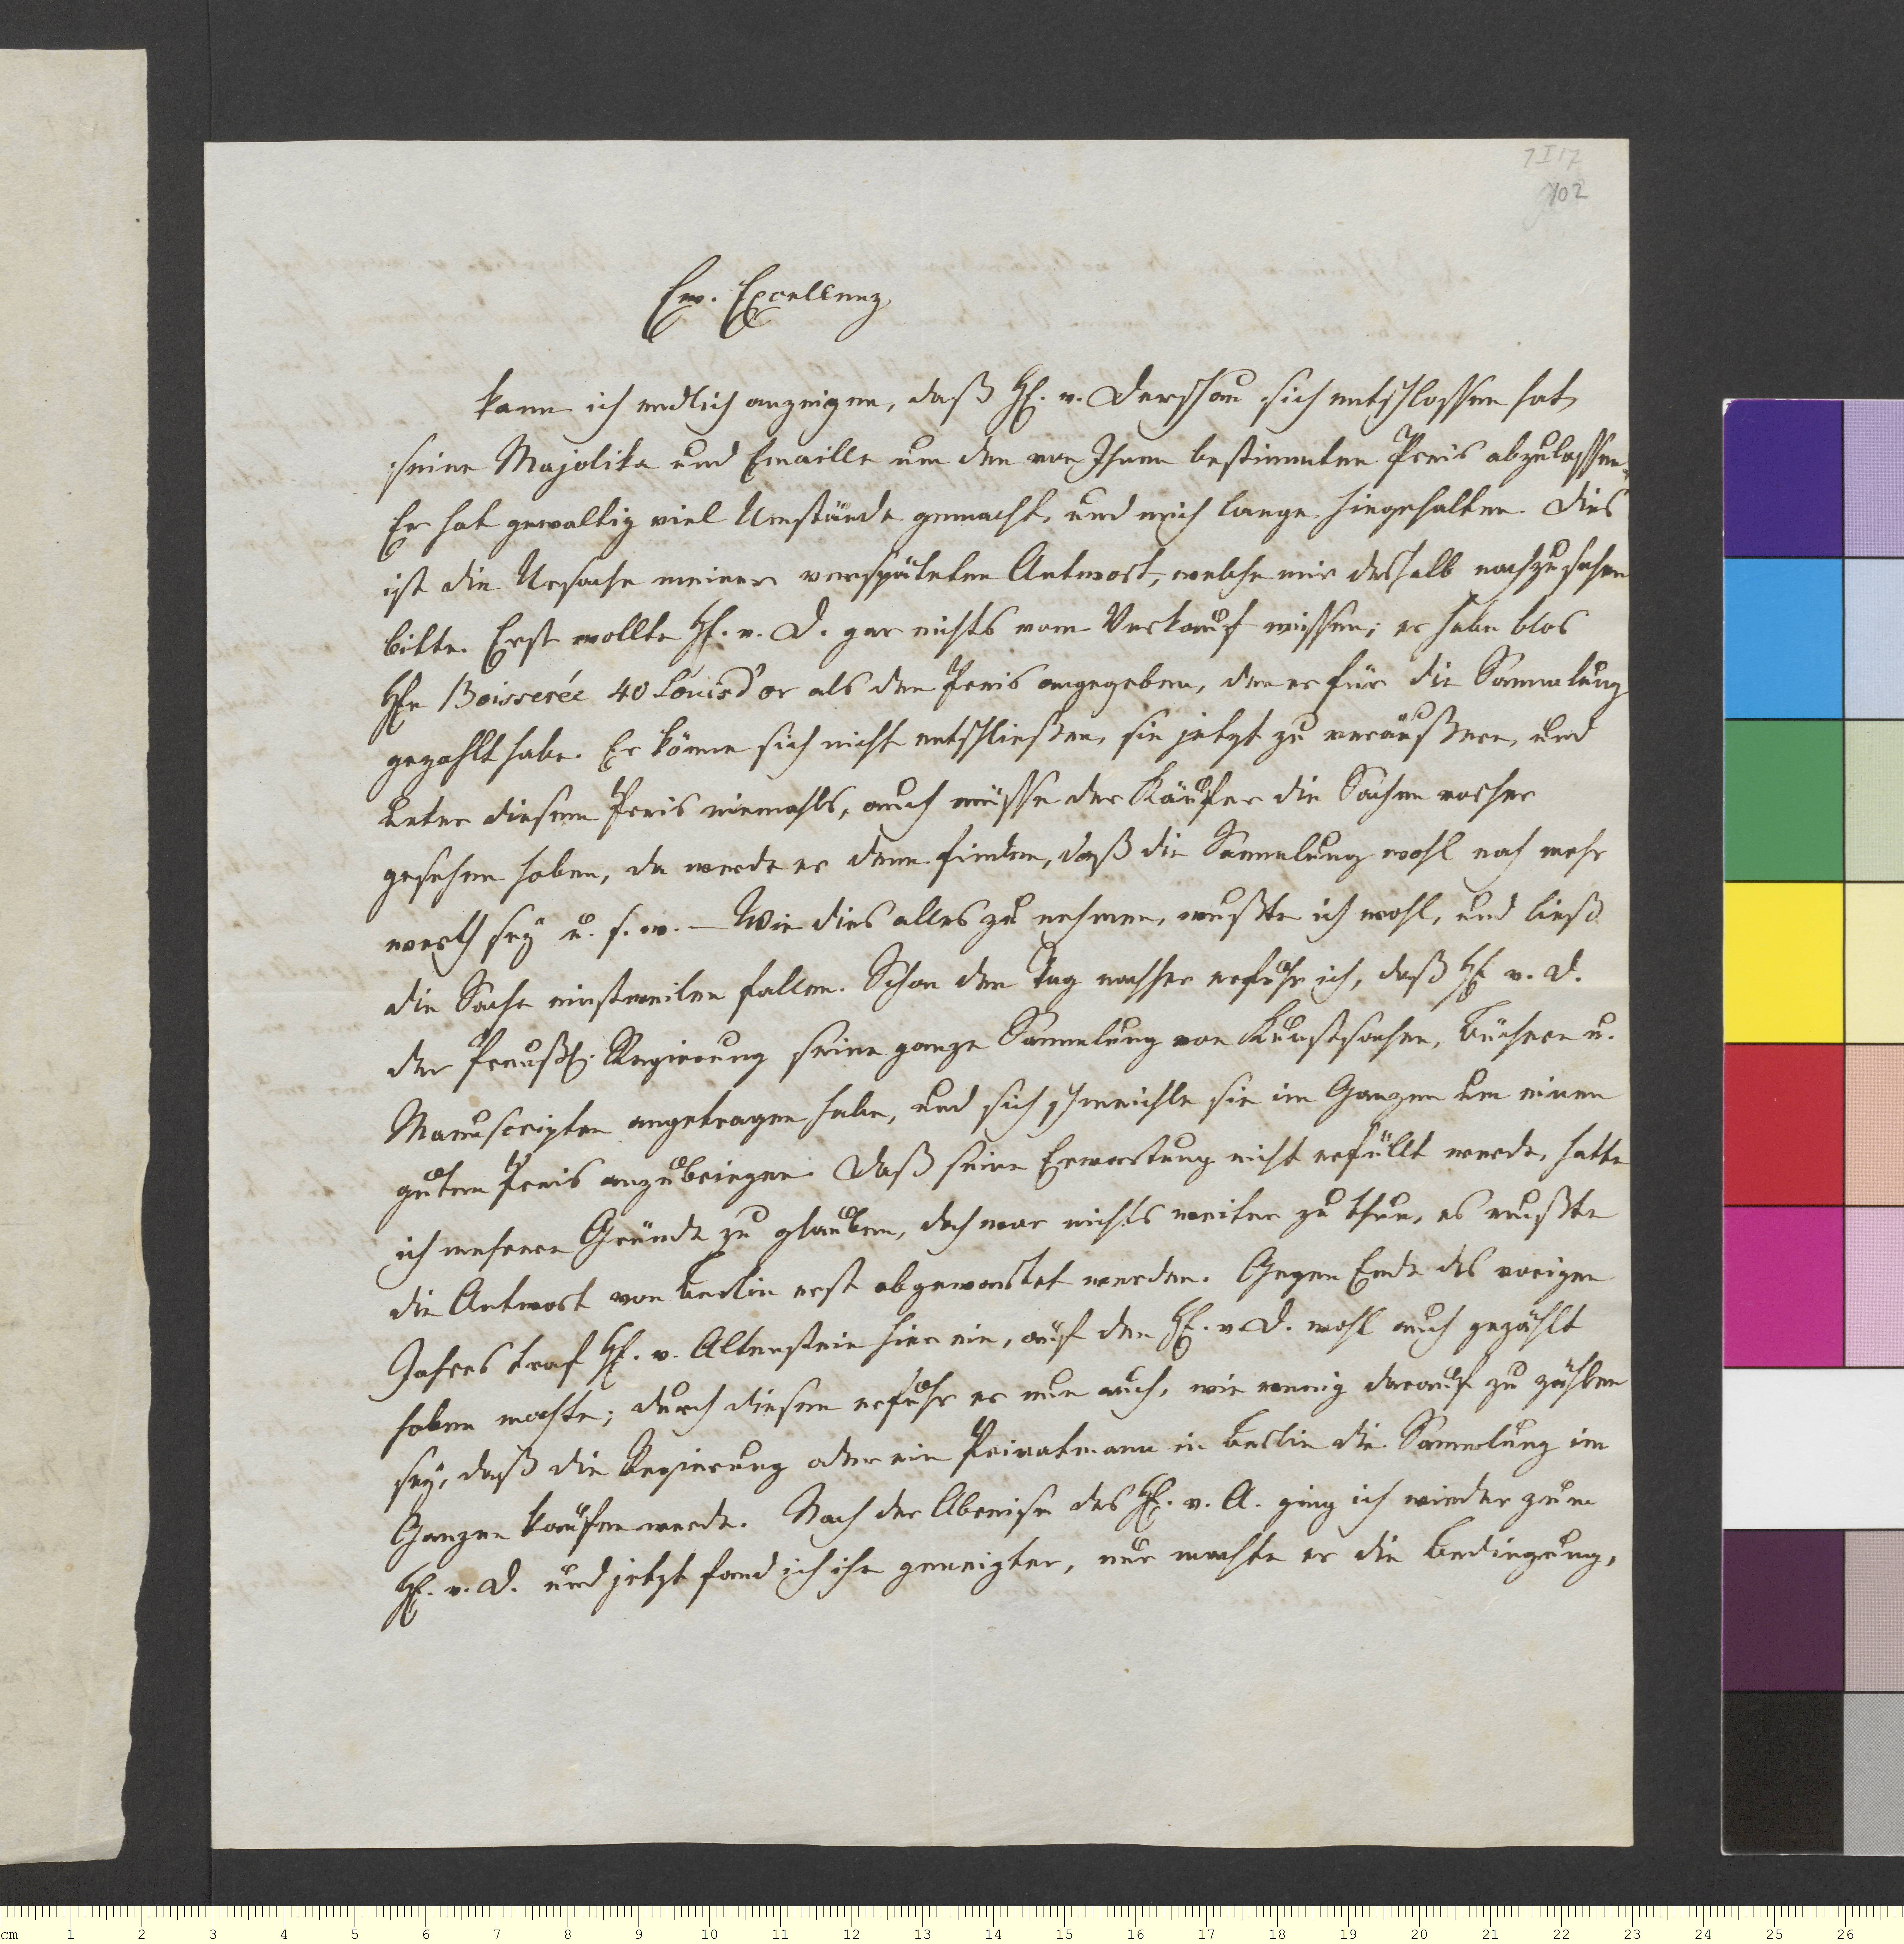 7 I 17
102
Ew. Excellenz
kann ich endlich anzeigen, daß Hr. v. Derschau sich entschlossen hat,
seine Majolika und Emaille um den von Ihnen bestimmten Preis abzulassen.
Er hat gewaltig viel Umstände gemacht, und mich lange hingehalten. Dies
ist die Ursache meiner verspäteten Antwort, welche mir deshalb nachzusehen
bitte. Erst wollte Hr. v. D. gar nichts vom Verkauf wissen; er habe blos
Hrn Boisserée 40 Louisd'or als den Preis angegeben, den er für die Sammlung
gezahlt habe. Er könne sich nicht entschließen, sie jetzt zu veräußern, und
unter diesem Preis niemahls, auch müsse der Käufer die Sachen vorher
gesehen haben, da werde er denn finden, daß die Sammlung wohl noch mehr
werth sey u. s. w. — Wie dies alles zu nehmen, wußte ich wohl, und ließ
die Sache einstweilen fallen. Schon den Tag nachher erfuhr ich, daß Hr. v. D.
der Preußs. Regierung seine ganze Sammlung von Kunstsachen, Büchern u.
Manuscripten angetragen habe, und sich schmeichle sie im Ganzen um einen
guten Preis anzubringen. Daß seine Erwartung nicht erfüllt werde, hatte
ich mehrere Gründe zu glauben, doch war nichts weiter zu thun, es mußte
die Antwort von Berlin erst abgewartet werden. Gegen Ende des vorigen
Jahres traf Hr. v. Altenstein hier ein, auf den Hr. v. D. wohl auch gezählt
haben mochte; durch diesen erfuhr er nun auch, wie wenig darauf zu zählen
sey, daß die Regierung oder ein Privatmann in Berlin die Sammlung im
Ganzen kaufen werde. Nach der Abreise des Hr. v. A. ging ich wieder zum
Hr. v. D. und jetzt fand ich ihn geneigter, nur machte er die Bedingung,
cm 1 2 3 4 5 6 7 8 9 10 11 12 13 14 15 16 17 18 19 20 21 22 23 24 25 26